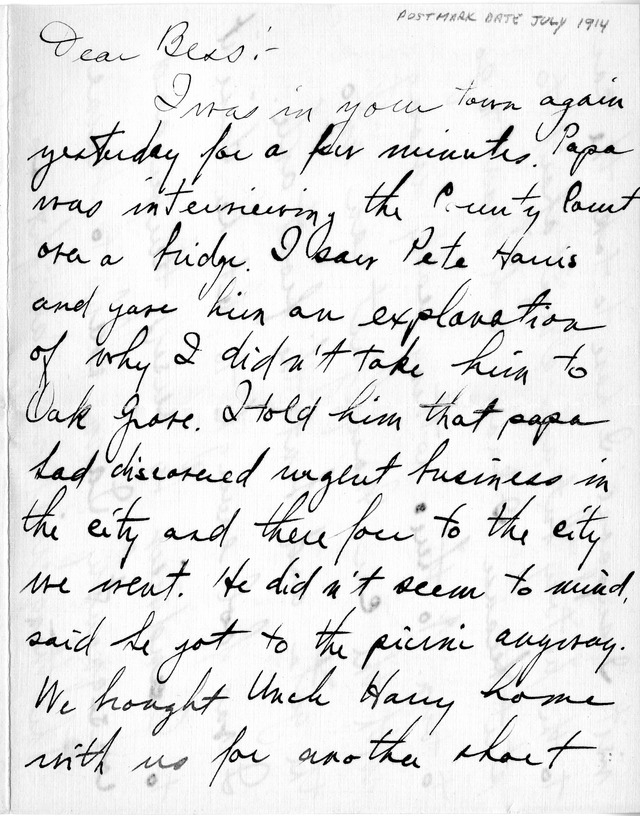 POSTMARK DATE JULY 1914
Dear Bess:-
I was in your town again
yesterday for a few minutes. Papa
was interviewing the County Court
over a bridge. I saw Pete Harris
and gave him an explanation
of why I didn't take him to
Oak Grove. I told him that papa
had discovered urgent business in
the city and therefore to the city
we went. He didn't seem to mind,
said he got to the picnic anyway.
We brought Uncle Harry home
with us for another short